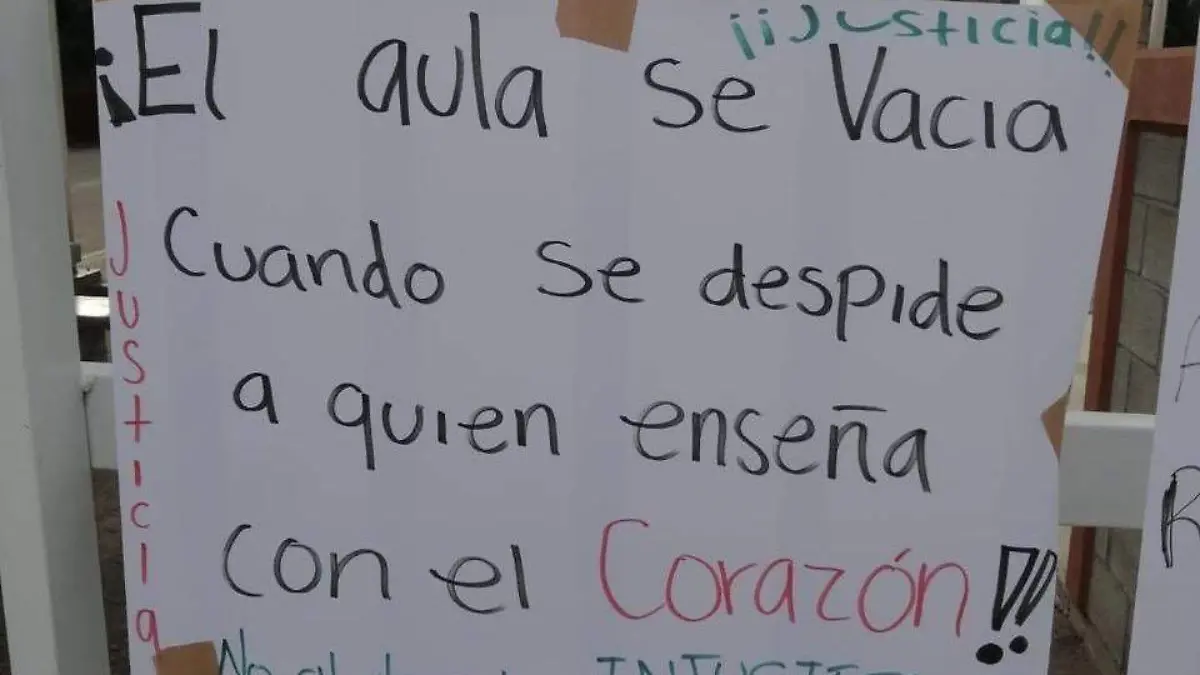 ¡¡Justicia!!
¡El aula se Vacia
Cuando se despide
a quien enseña
con el Corazón!!
Justicia
No al